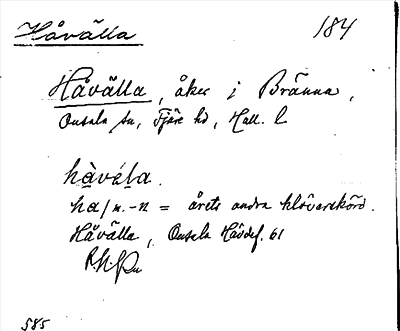 Håvälla 184
Håvälla, åker i Bränna,
Onsala sn, Fjäre hd, Hall. l
hàvéla.
ha/n.-n = årets andra klöverskörd.
Håvälla, Onsala Hävdef. 61
585